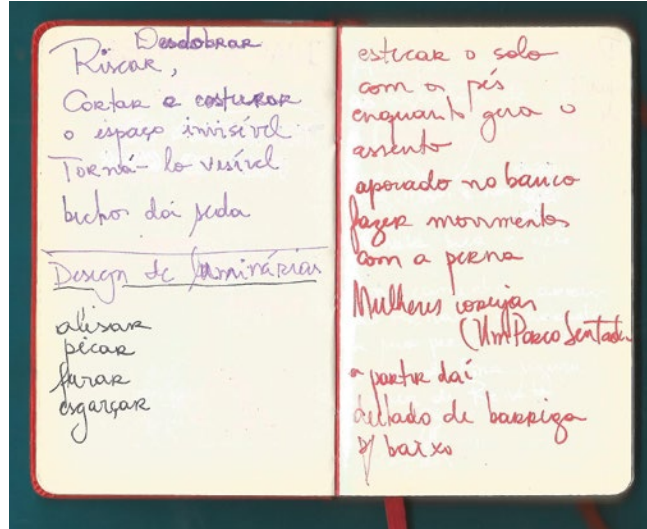 Desdobrar
Riscar,
Cortar e costurar
o espaço invisível
Torná-lo visível
bicho da seda
Design de luminárias
alisar
picar
furar
esgarçar
esticar o solo
com os pés
enquanto gira o
assento
apoiado no banco
fazer movimentos
com a perna
Mulheres
(Um Porco Sentado
a partir daí
deitado de barriga
p/ baixo